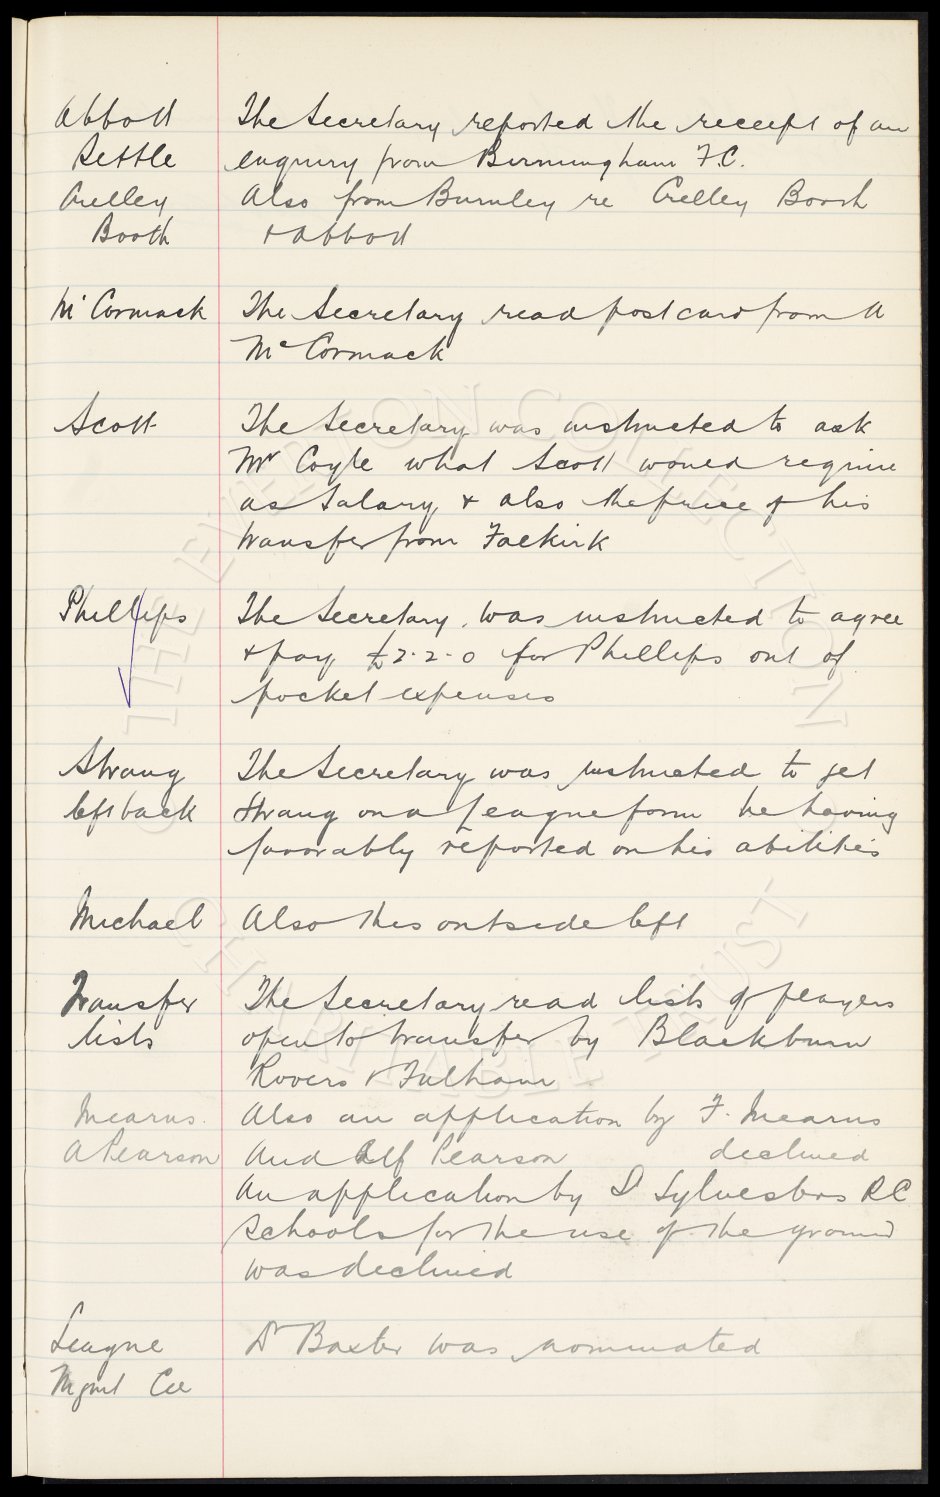 Abbott The Secretary reported the receipt of an
Settle enquiry from Birmingham F.C.
Crelley Also from Burnley re Crelley Booth
Booth & Abbott
McCormack The Secretary read post card from A
McCormack
Scott The Secretary was instructed to ask
Mr Coyle what Scott would require
as Salary & also the price of his
transfer from Falkirk
Phillips The Secretary was instructed to agree
& pay £2-2-0 for Phillips out of
pocket expenses
Strang The Secretary was instructed to get
left back Strang on a League form he having
favorably reported on his abilities
Michael Also this outside left
Transfer The Secretary read lists of players
lists open to transfer by Blackburn
Rovers & Fulham
Mearns. Also an application by F. Mearns
A Pearson And Alf Pearson declined
An application by S Sylvesters RC
Schools for the use of the ground
was declined
League Dr Baxter was nominated
Mgmt Cee
THE EVERTON COLLECTION
CHARITABLE TRUST